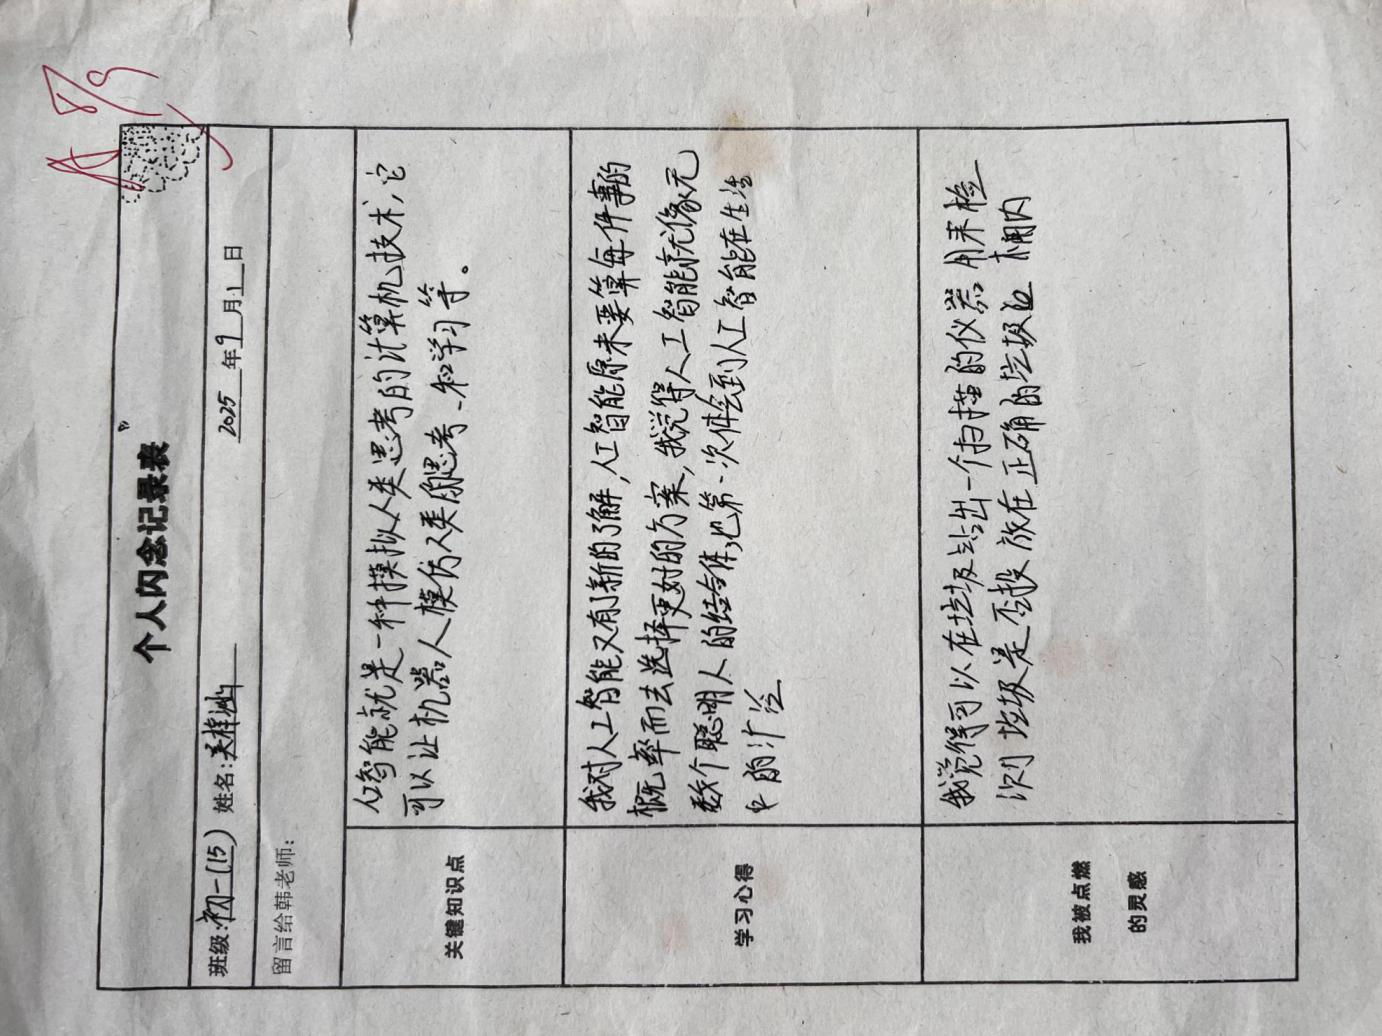 个人闪念记录表
班级:初一(15) 姓名: 2025年9月1日
留言给韩老师:
关键知识点
人工智能就是一种模拟人类思考的计算机技术,它
可以让机器人模仿人类用思考、和学习等。
学习心得
我对人工智能又有了新的了解,人工智能原来要算每件事的
概率而去选择更好的方案,我觉得人工智能就像无
数个聪明人的结合体,也第一次体会到人工智能在生活
中的广泛
我被点燃
的灵感
我觉得可以在垃圾站出一个扫描的仪器用来检
测垃圾是否投放在正确的垃圾 桶内
A 8/9